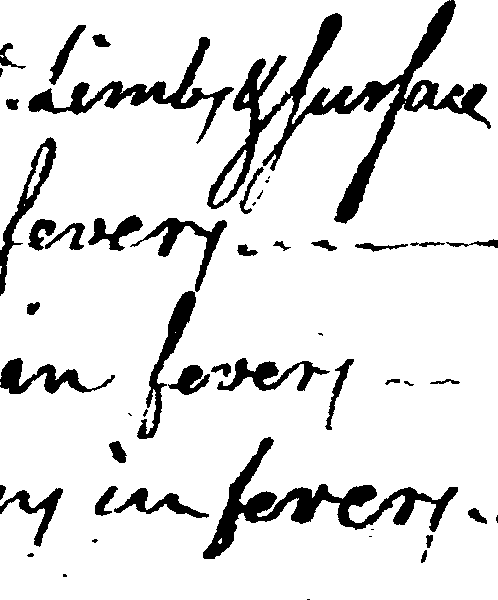 Limbs & surface
fevers
in fevers
in fevers